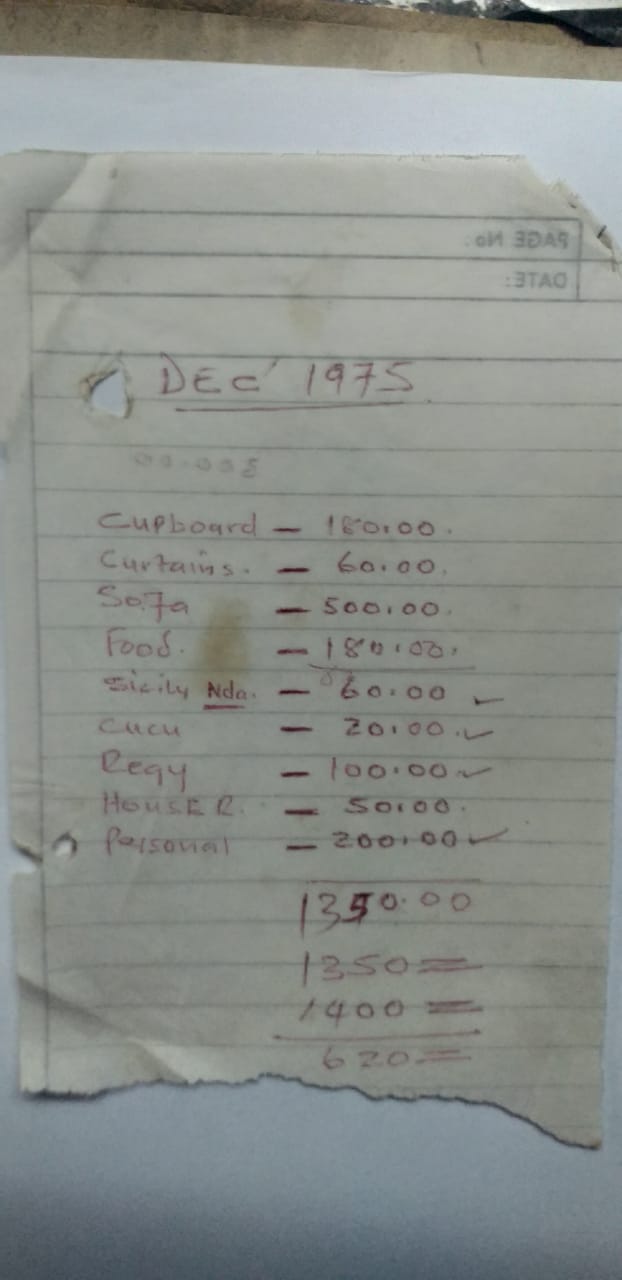 PAGE No.
DATE:
DEC' 1975
300.00
Cupboard — 180.00.
Curtains. — 60.00.
Sofa — 500.00.
Food. — 180.00.
Sicily Nda. — 60.00 ✓
Cucu — 20.00. ✓
Regy — 100.00 ✓
House R. — 50.00.
Personal — 200.00 ✓
1350.00
1350=
1400=
620=